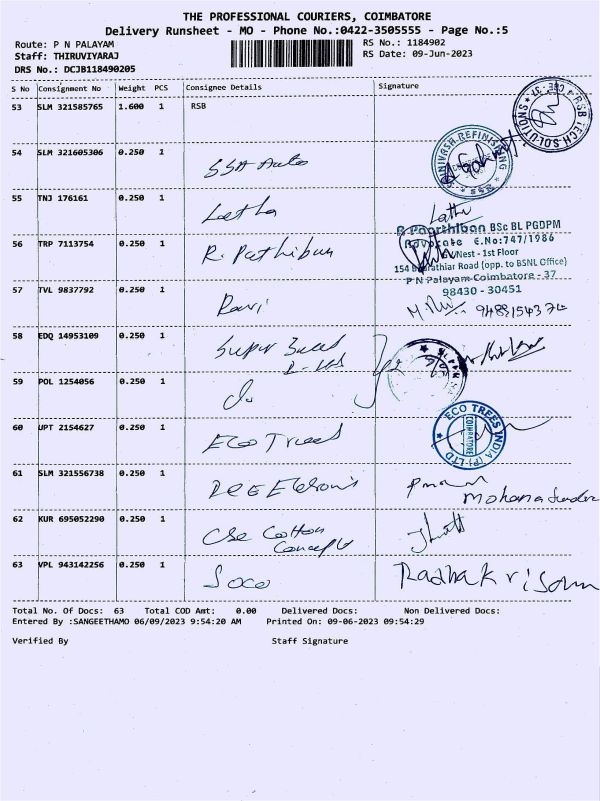 THE PROFESSIONAL COURIERS, COIMBATORE
Delivery Runsheet - MO - Phone No.:0422-3505555 - Page No.:5
Route: P N PALAYAM
RS No.: 1184902
Staff: THIRUVIYARAJ
RS Date: 09-Jun-2023
DRS No.: DCJB118490205
S No Consignment No Weight PCS Consignee Details Signature
53 SLM 321585765 1.600 1 RSB
RSB TECH SOLUTIONS
54 SLM 321605306 0.250 1 SSA Auto
REFINISHING
55 TNJ 176161 0.250 1 Latha Latha
56 TRP 7113754 0.250 1 R. Pathiban
Paarthiban BSc BL PGDPM
Advocate E.No:747/1986
Nest - 1st Floor
154 Bharathiar Road (opp. to BSNL Office)
P N Palayam Coimbatore - 37
98430 - 30451
57 TVL 9837792 0.250 1 Ravi
58 EDQ 14953109 0.250 1 Super
59 POL 1254056 0.250 1 Do
60 UPT 2154627 0.250 1 Eco Trees
ECO TREES INDIA (P) LTD
COIMBATORE
61 SLM 321556738 0.250 1
Mohana Sundar
62 KUR 695052290 0.250 1 Cse Cotton
Concept
63 VPL 943142256 0.250 1 Soco Radhakrisonn
Total No. Of Docs: 63 Total COD Amt: 0.00 Delivered Docs: Non Delivered Docs:
Entered By :SANGEETHAMO 06/09/2023 9:54:20 AM Printed On: 09-06-2023 09:54:29
Verified By Staff Signature